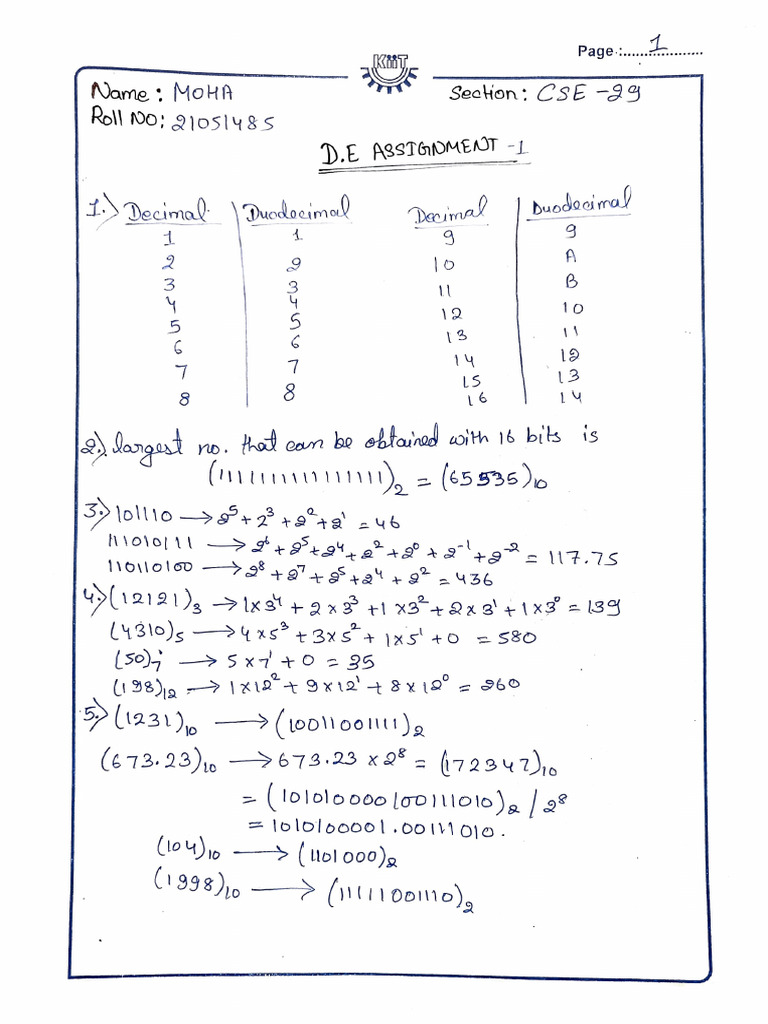 Page :.....1..........
KiiT
Name : MOHA
Section : CSE -29
Roll NO: 21051485
D.E ASSIGNMENT -1
1.) Decimal | Duodecimal Decimal | Duodecimal
1 1 9 9
2 2 10 A
3 3 11 B
4 4 12 10
5 5 13 11
6 6 14 12
7 7 15 13
8 8 16 14
2.) largest no. that can be obtained with 16 bits is
(1111111111111111)₂ = (65535)₁₀
3.) 101110 → 2⁵ + 2³ + 2² + 2¹ = 46
111010111 → 2⁶ + 2⁵ + 2⁴ + 2² + 2⁰ + 2⁻¹ + 2⁻² = 117.75
110110100 → 2⁸ + 2⁷ + 2⁵ + 2⁴ + 2² = 436
4.) (12121)₃ → 1x3⁴ + 2x3³ + 1x3² + 2x3¹ + 1x3⁰ = 139
(4310)₅ → 4x5³ + 3x5² + 1x5¹ + 0 = 580
(50)₇ → 5x7¹ + 0 = 35
(198)₁₂ → 1x12² + 9x12¹ + 8x12⁰ = 260
5.) (1231)₁₀ → (10011001111)₂
(673.23)₁₀ → 673.23 x 2⁸ = (172347)₁₀
= (101010000100111010)₂ / 2⁸
= 1010100001.00111010.
(104)₁₀ → (1101000)₂
(1998)₁₀ → (11111001110)₂